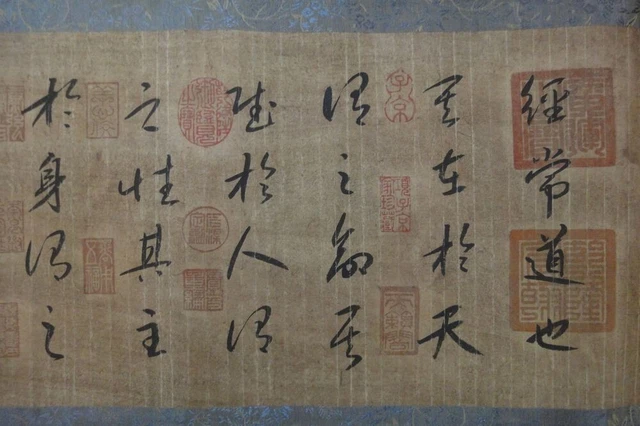 經常道也
其在於天
謂之命其
賦於人謂
之性其主
於身謂之
子京